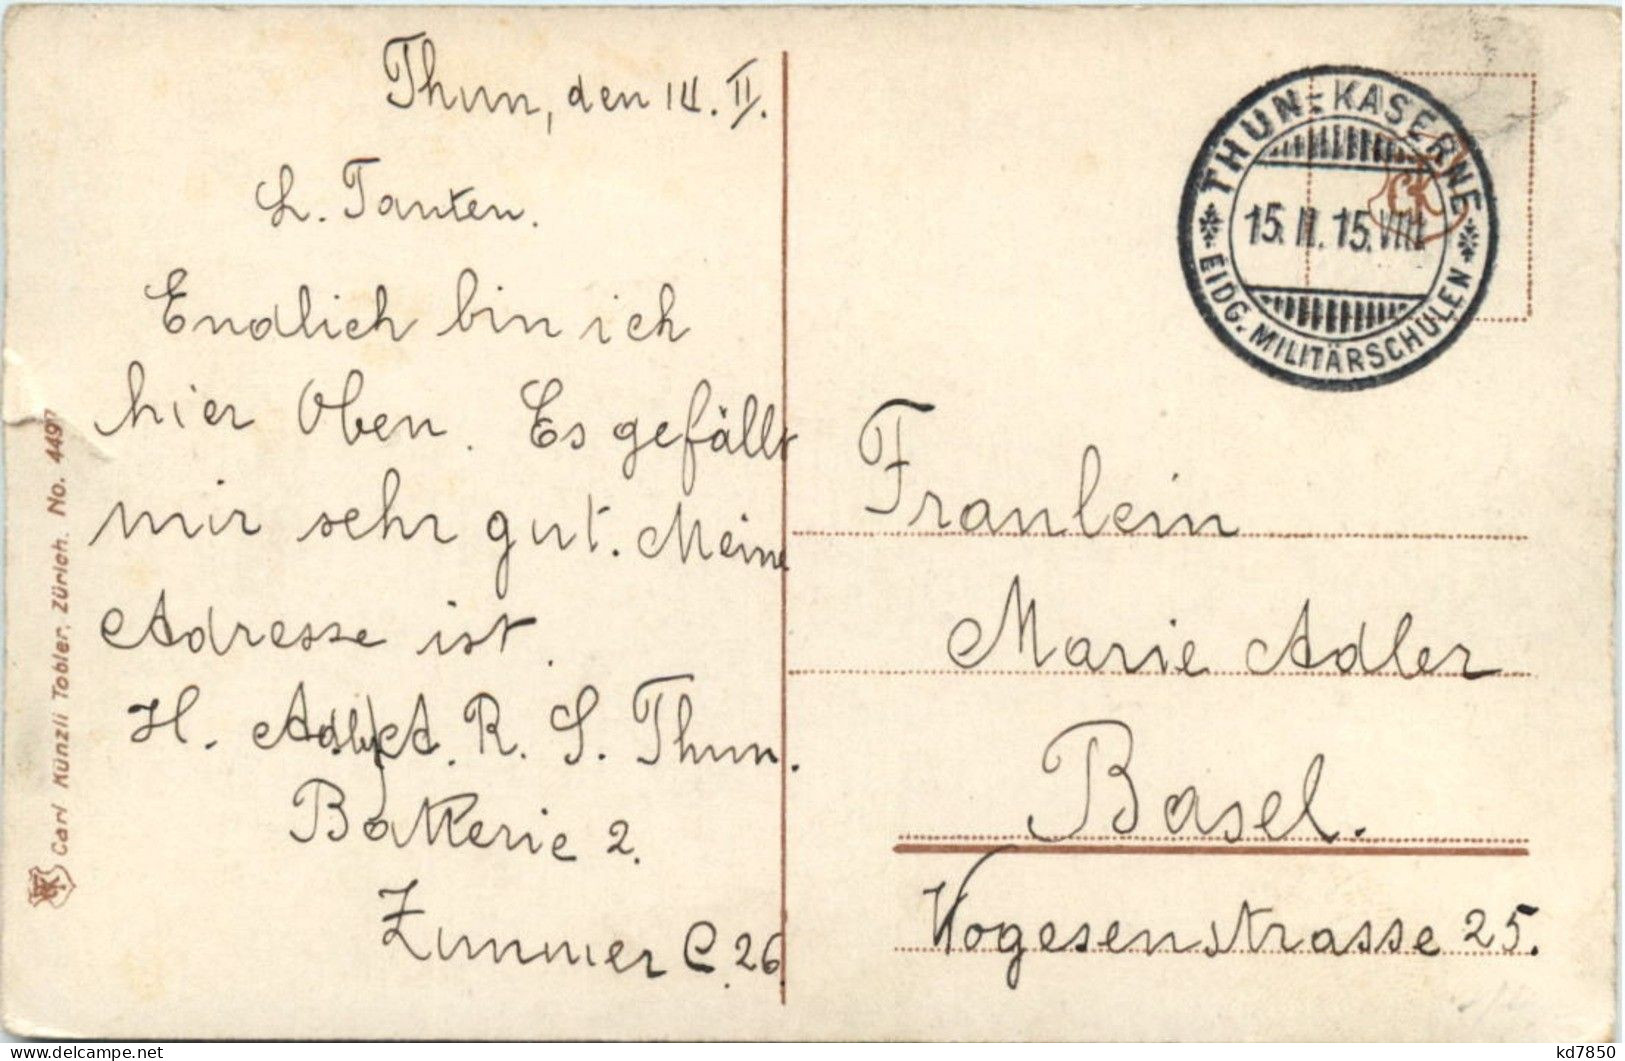 Thun, den 14. II.
L. Tanten.
Endlich bin ich
hier Oben. Es gefällt
mir sehr gut. Meine
Adresse ist.
H. A. R. S. Thun.
Batterie 2.
Zimmer C. 26
Carl Künzli Tobler, Zürich. No. 4497
THUN-KASERNE
15. II. 15. VIII
EIDG. MILITÄRSCHULEN
CK
Fraulein
Marie Adler
Basel.
Vogesenstrasse 25.
kd7850